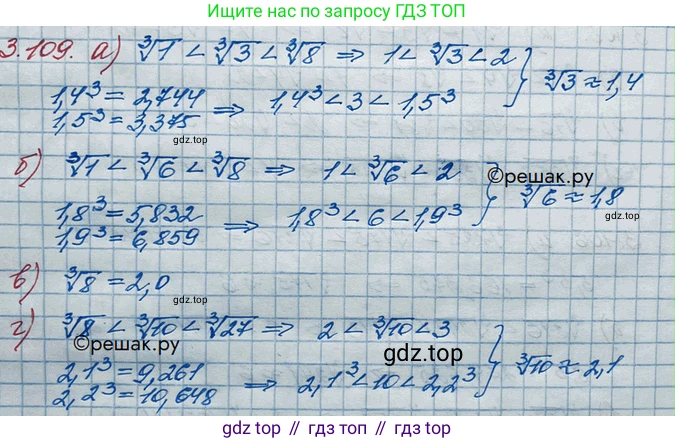 Ищите нас по запросу ГДЗ ТОП
3.109. а) ∛1 < ∛3 < ∛8 ⇒ 1 < ∛3 < 2
1,4³ = 2,744
1,5³ = 3,375 ⇒ 1,4³ < 3 < 1,5³ } ∛3 ≈ 1,4
gdz.top
б) ∛1 < ∛6 < ∛8 ⇒ 1 < ∛6 < 2
©решак.ру
1,8³ = 5,832
1,9³ = 6,859 ⇒ 1,8³ < 6 < 1,9³ } ∛6 ≈ 1,8
gdz.top
gdz.top
в) ∛8 = 2,0
gdz.top
г) ∛8 < ∛10 < ∛27 ⇒ 2 < ∛10 < 3
©решак.ру
gdz.top
2,1³ = 9,261
2,2³ = 10,648 ⇒ 2,1³ < 10 < 2,2³ } ∛10 ≈ 2,1
gdz.top // гдз.top // гдз.топ